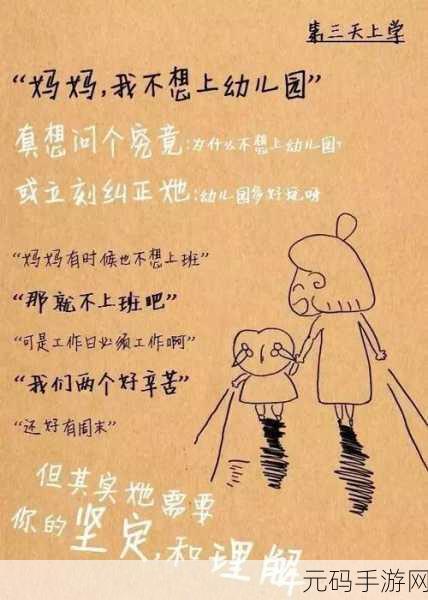 第三天上学
“妈妈,我不想上幼儿园”
真想问个究竟:为什么不想上幼儿园?
或立刻纠正她:幼儿园多好玩呀
“妈妈有时候也不想上班”
“那就不上班吧”
“可是工作日必须工作啊”
“我们两个好辛苦”
“还好有周末”
但其实她需要
你的坚定,和理解
元码手游网